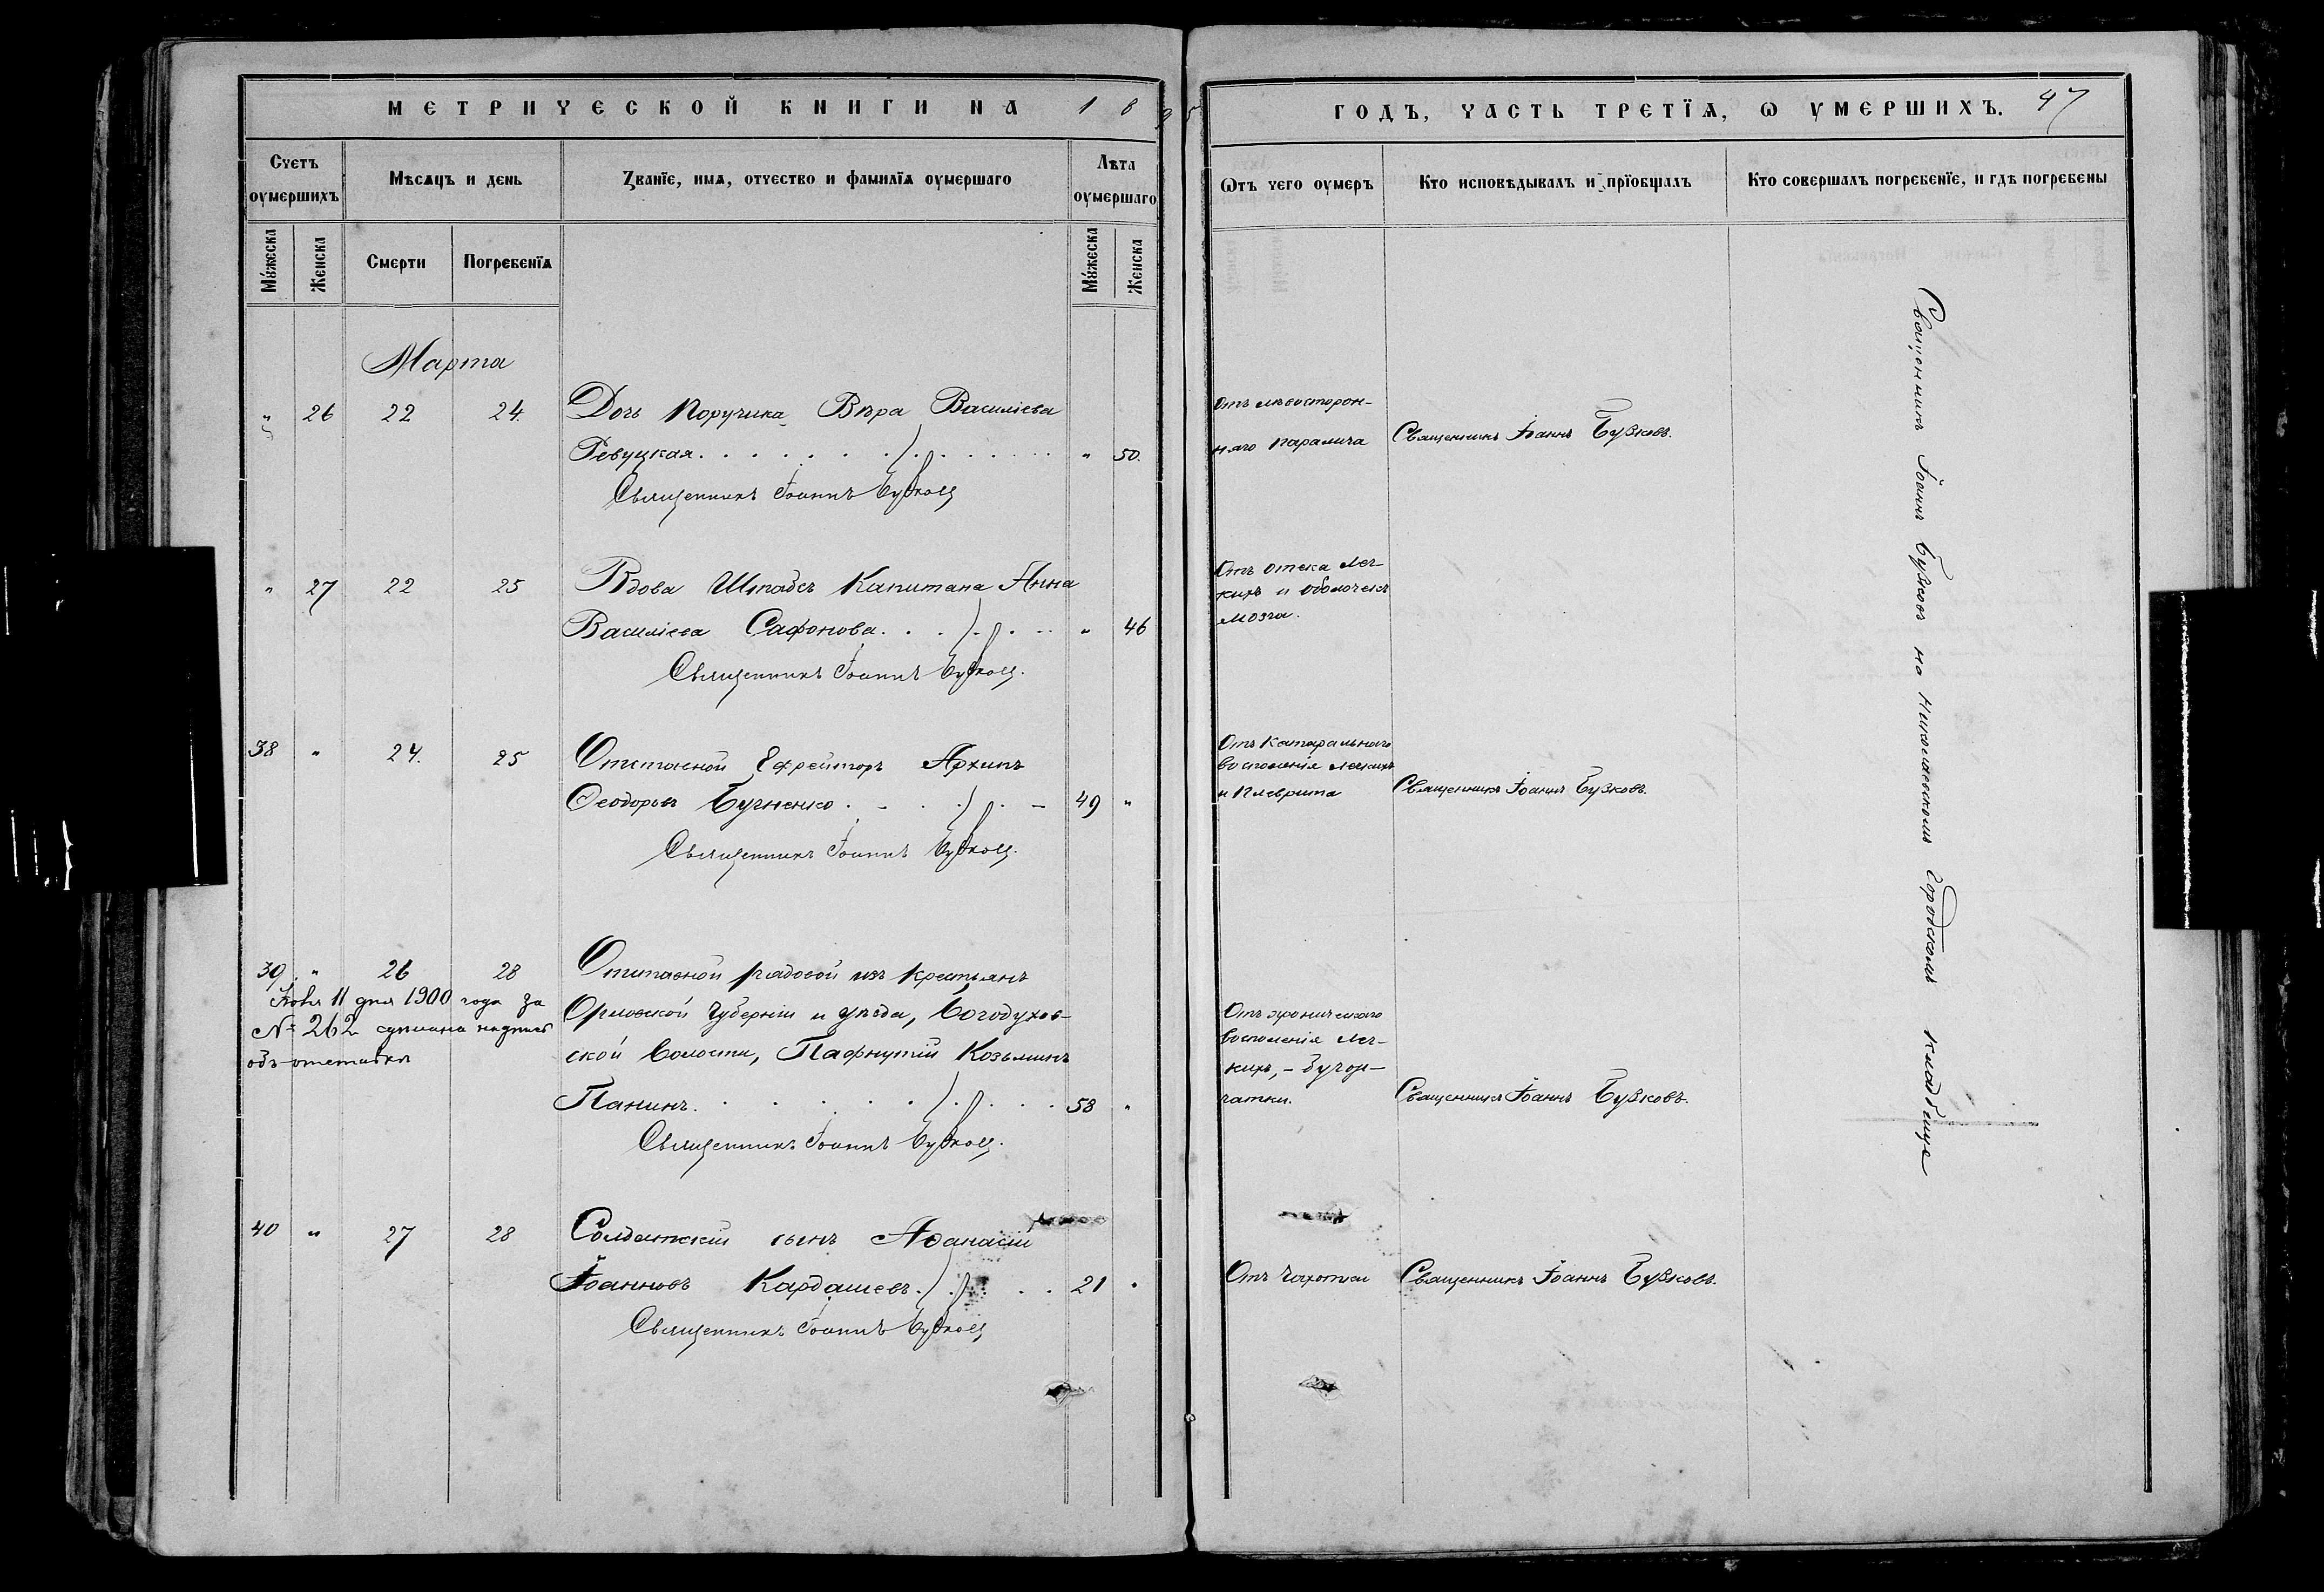 МЕТРИЧЕСКОЙ КНИГИ НА 1895
ГОДЪ, ЧАСТЬ ТРЕТЇѦ, Ѡ УМЕРШИХЪ. 47
Счетъ оумершихъ
Мѣсѧцъ и день
Званїе, имѧ, отчество и фамилїѧ оумершаго
Лѣта оумершаго
Мꙋжеска
Женска
Смерти
Погребенїѧ
Мꙋжеска
Женска
Ѿтъ чего оумеръ
Кто исповѣдывалъ и прїобщалъ
Кто совершалъ погребенїе, и гдѣ погребены
Марта
" 26 22 24. Дочь Поручика Вѣра Васильева
Ревуцкая " 50.
Священникъ Іоаннъ Бузковъ
Отъ лѣвосторон-
няго паралича
Священникъ Іоаннъ Бузковъ.
" 27 22 25 Вдова Штабсъ Капитана Анна
Васильева Сафонова " 46
Священникъ Іоаннъ Бузковъ.
Отъ отека лег-
кихъ и оболочекъ
мозга.
38 " 24. 25 Отставной Ефрейторъ Архипъ
Ѳеодоровъ Бучненко 49 "
Священникъ Іоаннъ Бузковъ.
Отъ катаральнаго
воспаленія легкихъ
и плеврита
Священникъ Іоаннъ Бузковъ.
39 " 26 28 Отставной рядовой изъ крестьянъ
Орловской Губерніи и уѣзда, Богодухов-
ской Волости, Пафнутій Козьминъ
Панинъ 58 "
Священникъ Іоаннъ Бузковъ.
11 дня 1900 года за
№ 262 сдѣлана надпись
объ отставкѣ
Отъ хроническаго
воспаленія лег-
кихъ, – бугор-
чатки.
Священникъ Іоаннъ Бузковъ.
40 " 27 28 Солдатскій сынъ Аѳанасій
Іоанновъ Кардашевъ 21 "
Священникъ Іоаннъ Бузковъ
Отъ чахотки
Священникъ Іоаннъ Бузковъ.
Священникъ Іоаннъ Бузковъ на Николаевскомъ Городскомъ кладбище